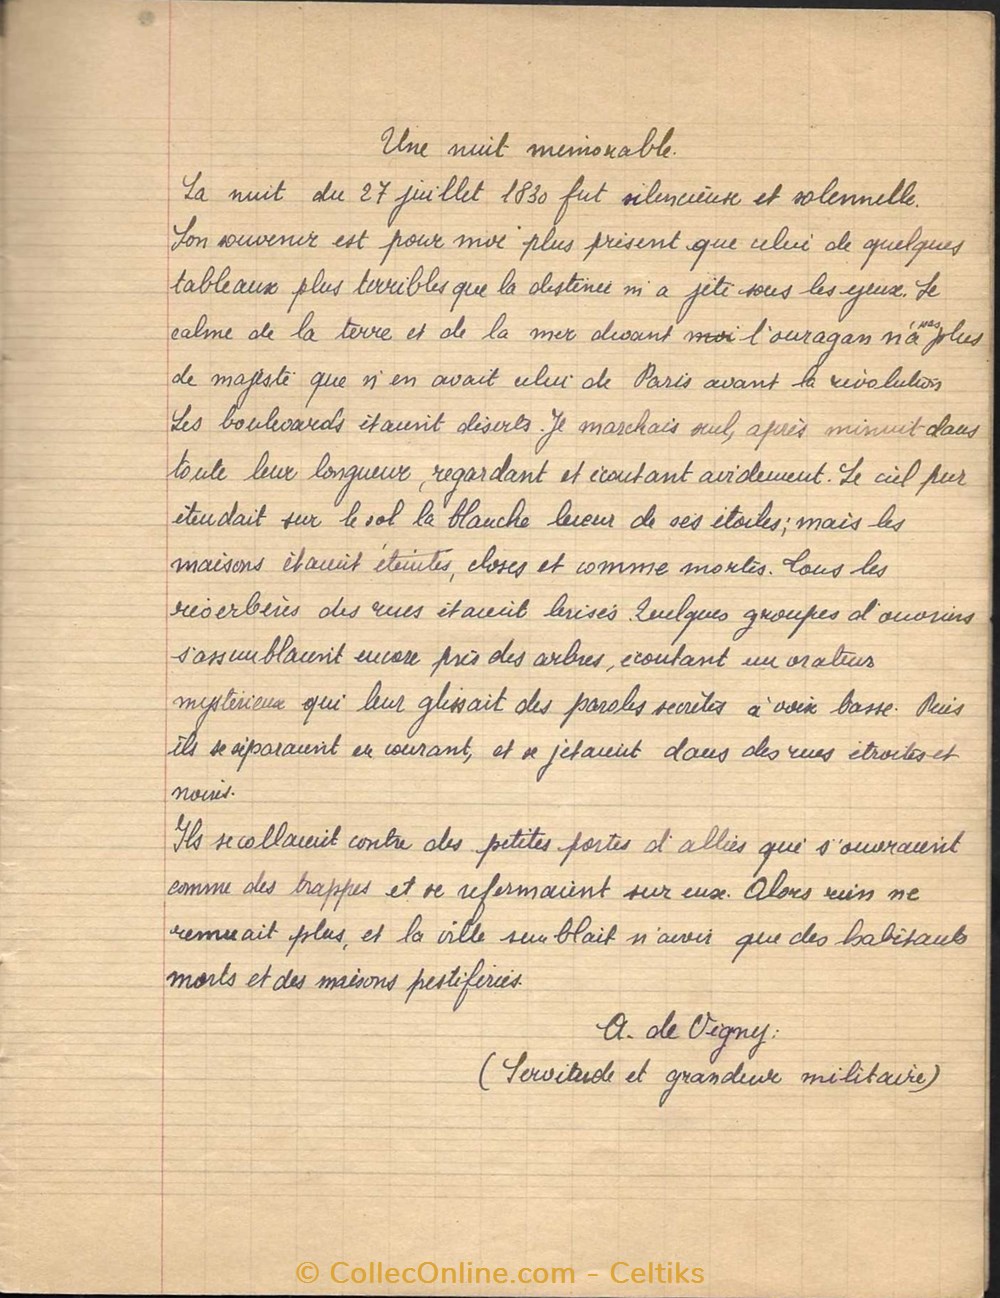 Une nuit mémorable.
La nuit du 27 juillet 1830 fut silencieuse et solennelle.
Son souvenir est pour moi plus présent que celui de quelques
tableaux plus terribles que la destinée m'a jeté sous les yeux. Le
calme de la terre et de la mer devant moi l'ouragan n'a pas plus
de majesté que n'en avait celui de Paris avant la révolution
Les boulevards étaient déserts. Je marchais seul, après minuit dans
toute leur longueur, regardant et écoutant avidement. Le ciel pur
étendait sur le sol la blanche lueur de ses étoiles; mais les
maisons étaient éteintes, closes et comme mortes. Tous les
réverbères des rues étaient brisés. Quelques groupes d'ouvriers
s'assemblaient encore près des arbres, écoutant un orateur
mystérieux qui leur glissait des paroles secrètes à voix basse. Puis
ils se séparaient en courant, et se jetaient dans des rues étroites et
noires.
Ils se collaient contre des petites portes d'allées qui s'ouvraient
comme des trappes et se refermaient sur eux. Alors rien ne
remuait plus, et la ville semblait n'avoir que des habitants
morts et des maisons pestiférées.
A. de Vigny.
(Servitude et grandeur militaire)
© CollecOnline.com - Celtiks